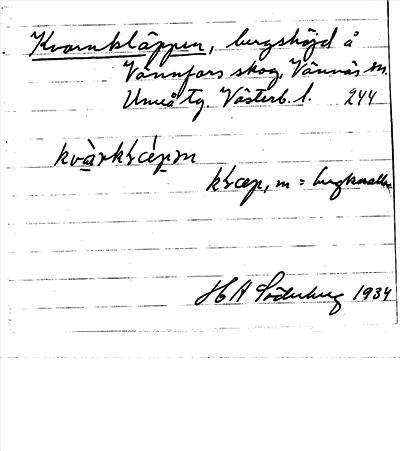 Kvarnkläppen, bergshöjd å
Vännfors skog, Vännäs sn.
Umeå tg. Västerb. l. 244
kvàrkʟǽpm
kʟæp, m = bergknalle
H A Söderberg 1934